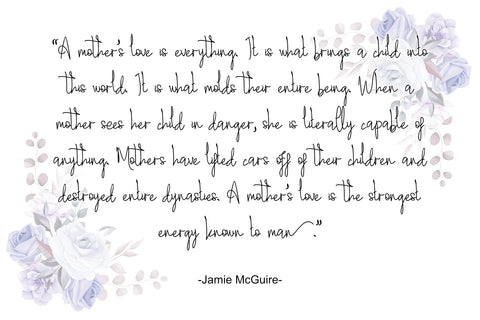 "A mother's love is everything. It is what brings a child into
this world. It is what molds their entire being. When a
mother sees her child in danger, she is literally capable of
anything. Mothers have lifted cars off of their children and
destroyed entire dynasties. A mother's love is the strongest
energy known to man."
-Jamie McGuire-